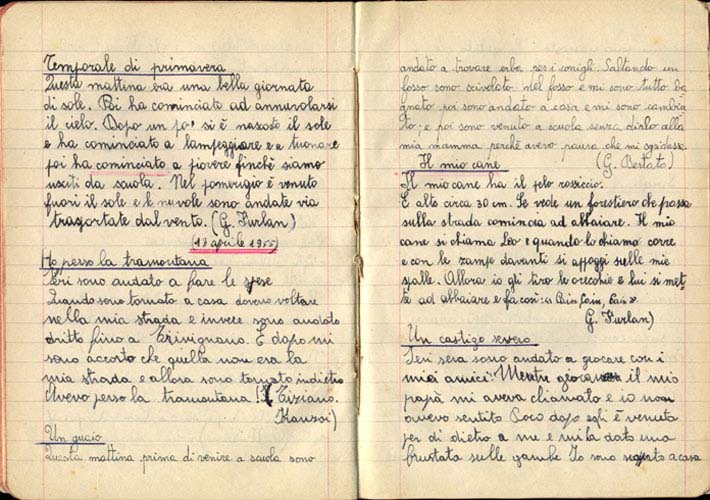 Temporale di primavera
Questa mattina era una bella giornata
di sole. Poi ha cominciato ad annuvolarsi
il cielo. Dopo un po' si è nascosto il sole
e ha cominciato a lampeggiare e a tuonare
poi ha cominciato a piovere finchè siamo
usciti da scuola. Nel pomerigio è venuto
fuori il sole e le nuvole sono andate via
trasportate dal vento. (G. Furlan)
(13 aprile 1955)
Ho perso la tramontana
Ieri sono andato a fare le spese
Quando sono tornato a casa dovevo voltare
nella mia strada e invece sono andato
dritto fino a Trivignano. E dopo mi
sono accorto che quella non era la
mia strada e allora sono tornato indietro
Avevo perso la tramontana! (Tiziano.
Un guaio
Questa mattina prima di venire a scuola sono
andato a trovare erba per i conigli. Saltando un
fosso sono scivolato nel fosso e mi sono tutto ba
gnato, poi sono andato a casa e mi sono cambia
to; e poi sono venuto a scuola senza dirlo alla
mia mamma perchè avevo paura che mi sgridasse
(G. Bertato)
Il mio cane
Il mio cane ha il pelo rossiccio.
È alto circa 30 cm. Se vede un forestiero che passa
sulla strada comincia ad abbaiare. Il mio
cane si chiama Leo e quando lo chiamo corre
e con le zampe davanti si appoggi sulle mie
spalle. Allora io gli tiro le orecchie e lui si met
te ad abbaiare e fa così: « Bain, bain, bain ».
G. Furlan)
Un castigo severo
Ieri sera sono andato a giocare con i
miei amici. Mentre giocavo il mio
papà mi aveva chiamato e io non
avevo sentito Poco dopo egli è venuto
per di dietro a me e mi ha dato una
frustata sulle gambe Io sono scappato a casa